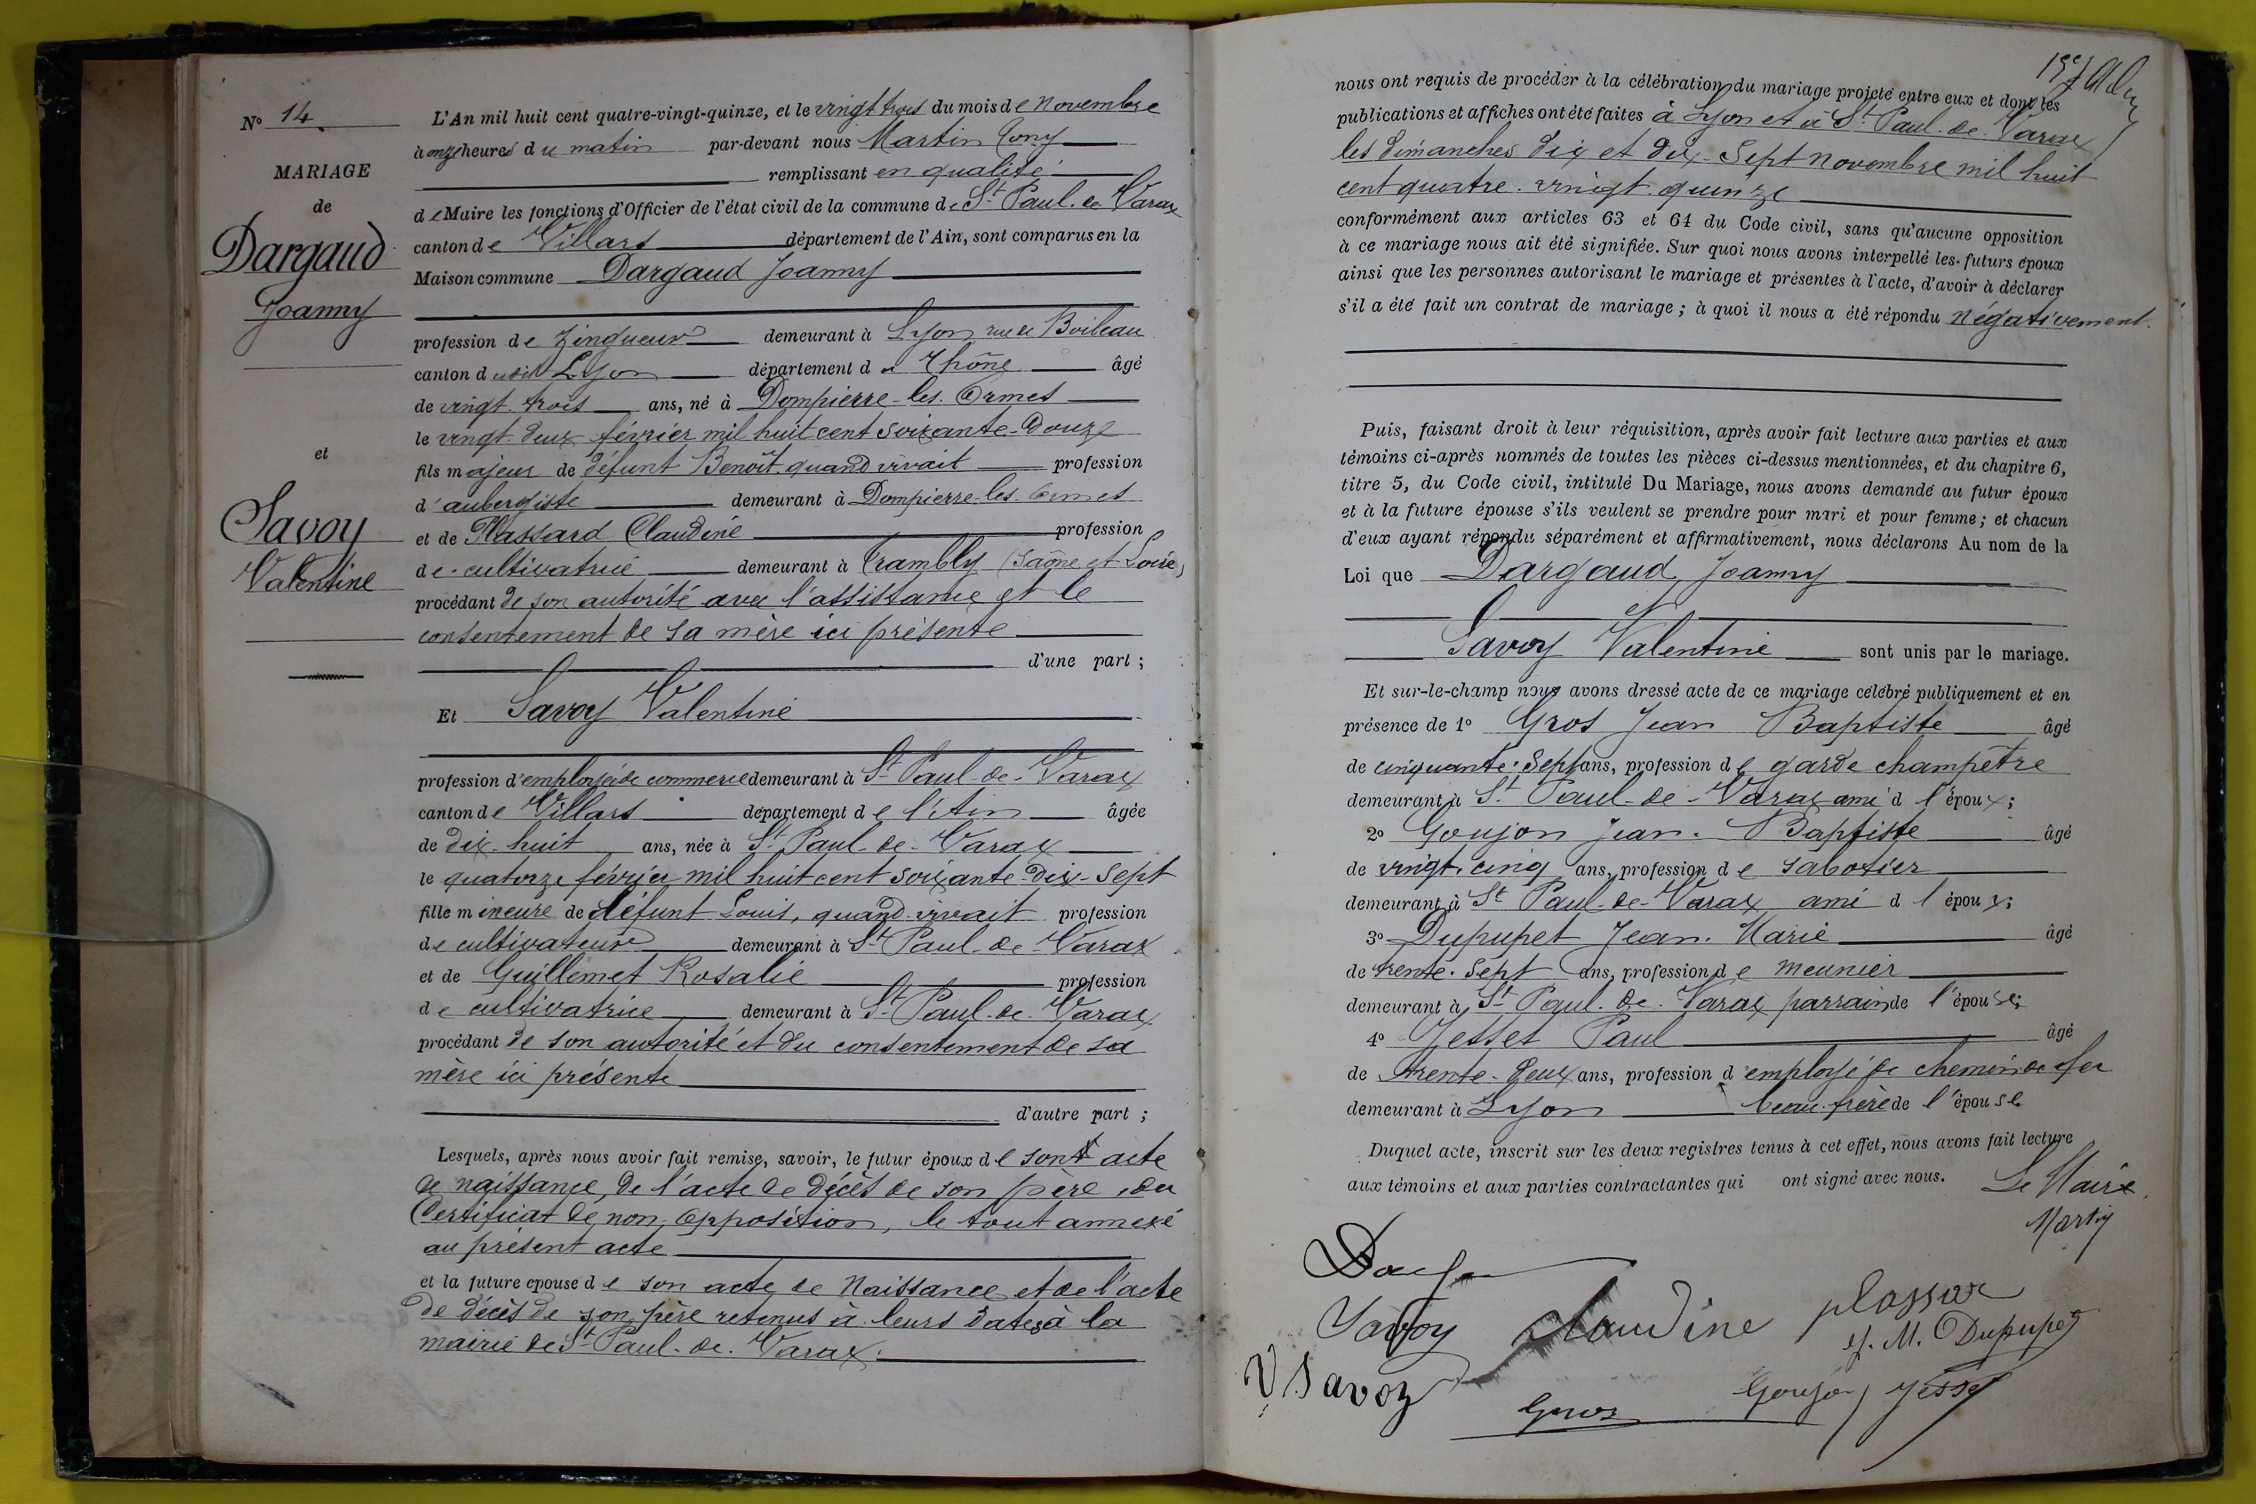 N° 14
MARIAGE
de
Dargaud
Joanny
et
Savoy
Valentine
L'An mil huit cent quatre-vingt-quinze, et le vingt trois du mois de Novembre
à onze heures du matin par-devant nous Martin Tony
remplissant en qualité
de Maire les fonctions d'Officier de l'état civil de la commune de St Paul-de Varax
canton de Villars département de l'Ain, sont comparus en la
Maison commune Dargaud Joanny
profession de Zingueur demeurant à Lyon, rue Boileau
canton de Lyon département du Rhône âgé
de vingt-trois ans, né à Dompierre-les-Ormes
le vingt-deux février mil huit cent soixante-douze
fils majeur de défunt Benoît quand vivait profession
d'aubergiste demeurant à Dompierre-les-Ormes
et de Plassard Claudine profession
de cultivatrice demeurant à Trambly (Saône et Loire)
procédant de son autorité avec l'assistance et le
consentement de sa mère ici présente
d'une part ;
Et Savoy Valentine
profession d'employée de commerce demeurant à St Paul-de-Varax
canton de Villars département de l'Ain âgée
de dix-huit ans, née à St Paul-de-Varax
le quatorze février mil huit cent soixante-dix-sept
fille mineure de défunt Louis, quand vivait profession
de cultivateur demeurant à St Paul-de-Varax
et de Guillemet Rosalie profession
de cultivatrice demeurant à St Paul-de-Varax
procédant de son autorité et du consentement de sa
mère ici présente
d'autre part ;
Lesquels, après nous avoir fait remise, savoir, le futur époux de son acte
de naissance, de l'acte de décès de son père, du
Certificat de non opposition, le tout annexé
au présent acte
et la future épouse de son acte de Naissance et de l'acte
de décès de son père retenus à leurs dates à la
mairie de St Paul-de-Varax.
nous ont requis de procéder à la célébration du mariage projeté entre eux et dont les
publications et affiches ont été faites à Lyon et à St Paul-de-Varax
les dimanches dix et dix-sept novembre mil huit
cent quatre-vingt-quinze
conformément aux articles 63 et 64 du Code civil, sans qu'aucune opposition
à ce mariage nous ait été signifiée. Sur quoi nous avons interpellé les futurs époux
ainsi que les personnes autorisant le mariage et présentes à l'acte, d'avoir à déclarer
s'il a été fait un contrat de mariage ; à quoi il nous a été répondu négativement.
Puis, faisant droit à leur réquisition, après avoir fait lecture aux parties et aux
témoins ci-après nommés de toutes les pièces ci-dessus mentionnées, et du chapitre 6,
titre 5, du Code civil, intitulé Du Mariage, nous avons demandé au futur époux
et à la future épouse s'ils veulent se prendre pour mari et pour femme ; et chacun
d'eux ayant répondu séparément et affirmativement, nous déclarons Au nom de la
Loi que Dargaud Joanny
Savoy Valentine sont unis par le mariage.
Et sur-le-champ nous avons dressé acte de ce mariage célébré publiquement et en
présence de 1° Gros Jean Baptiste âgé
de cinquante-sept ans, profession de garde champêtre
demeurant à St Paul-de-Varax ami de l'époux ;
2° Goujon Jean-Baptiste âgé
de vingt-cinq ans, profession de sabotier
demeurant à St Paul-de-Varax ami d l'époux ;
3° Dupupet Jean-Marie âgé
de trente-sept ans, profession de meunier
demeurant à St Paul-de-Varax parrain de l'épouse ;
4° Jesset Paul âgé
de trente-deux ans, profession d'employé de chemin de fer
demeurant à Lyon beau-frère de l'épouse
Duquel acte, inscrit sur les deux registres tenus à cet effet, nous avons fait lecture
aux témoins et aux parties contractantes qui ont signé avec nous. Le Maire
Martin
Savoy Claudine plassar
J. M. Dupupet
V Savoy
Gros Goujon Jesset